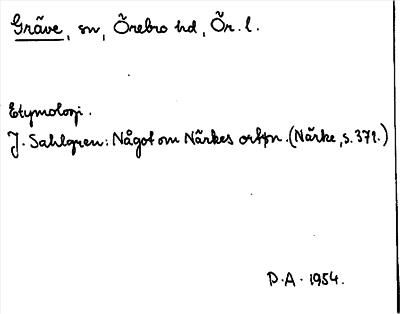 Gräve, sn, Örebro hd, Ör. l.
Etymologi.
J. Sahlgren: Något om Närkes ortpn. (Närke, s. 371.)
P.A. 1954.